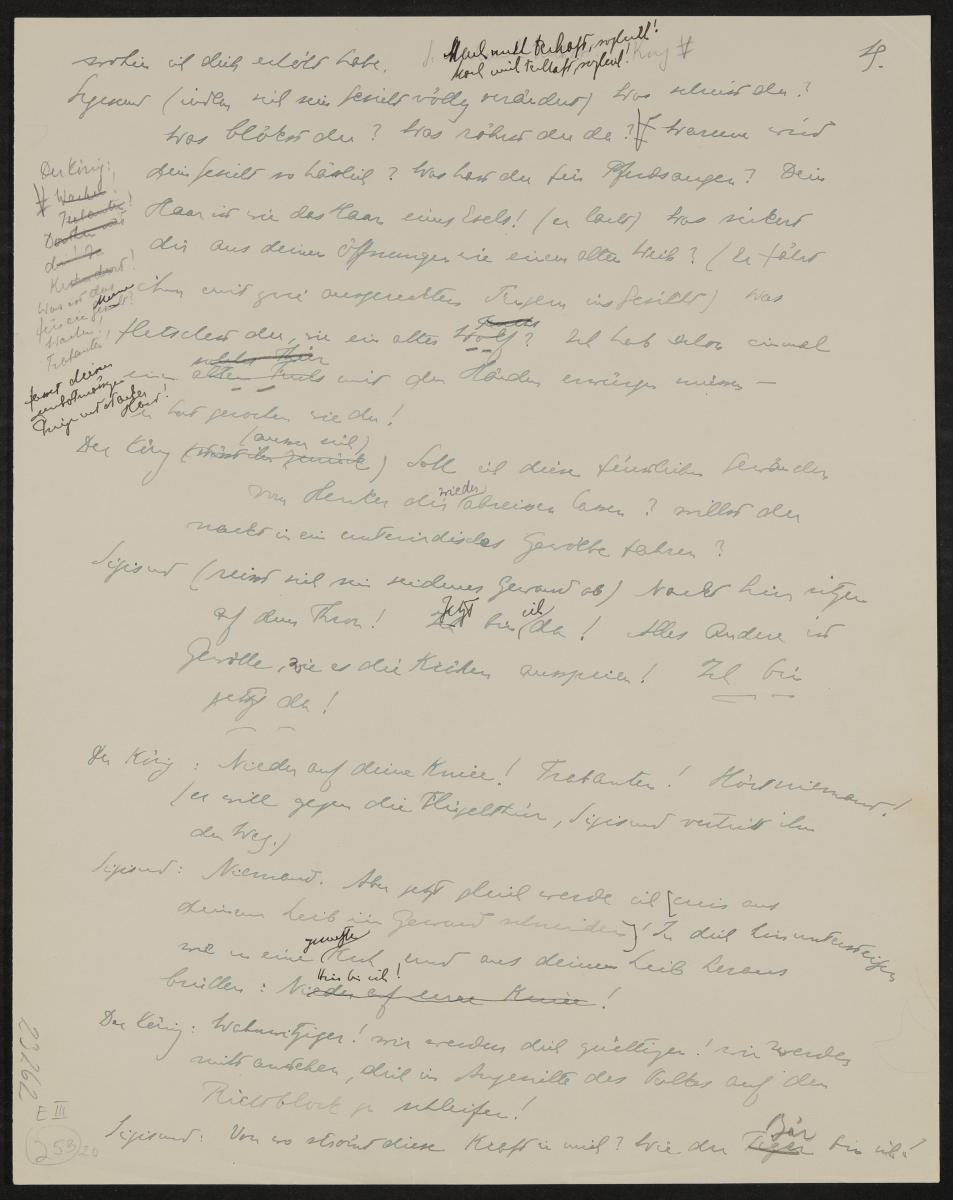 wohin ich dich erhöht habe.
19.
Sigismund (indem sich sein Gesicht völlig verändert) Was schreist du?
Was blökst du? Was röhrst du da? Warum wird
Dein Gesicht so hässlich? Was hast du für Pferdsaugen? Dein
Haar ist wie das Haar eines Esels! (er lacht) Was sickert
dir aus deinen Öffnungen wie einem alten Weib? (Er fährt
ihm mit zwei ausgereckten Fingern ins Gesicht) Was
fletschest du, wie ein alter Wolf? Ich hab schon einmal
einen alten Fuchs mit den Händen erwürgen müssen —
der hat gerochen wie du!
Der König:
Wache!
Trabanten!
Was ist das
für ein Gesicht?
Wachen!
Trabanten!
Der König (ausser sich) Soll ich diese fürstlichen Gewänder
vom Henker dir wieder abreissen lassen? willst du
nackt in ein unterirdisches Gewölbe fahren?
Sigismund (reisst sich sein seidenes Gewand ab) Nackt hier sitzen
auf dem Thron! Jetzt bin ich da! Alles Andere ist
Gewölle, wie es die Krähen ausspeien! Ich bin
jetzt da!
Der König: Nieder auf deine Kniee! Trabanten! Hört niemand!
(er will gegen die Flügelthür, Sigismund vertritt ihm
den Weg.)
Sigismund: Niemand. Aber jetzt gleich werde ich [mir aus
deinem Leib ein Gewand schneiden]! In dich hinuntersteigen
wie in eine Kuh und aus deinem Leib heraus
Hier bin ich!
brüllen: Nieder auf eure Kniee!
Der König: Wahnwitziger! wir werden dich züchtigen! wir werden
nicht anstehen, dich im Angesichte des Volkes auf den
Richtblock zu schleifen!
Sigismund: Von wo strömt diese Kraft in mich? Wie der Tiger Bär bin ich!
23762
E III
253
20